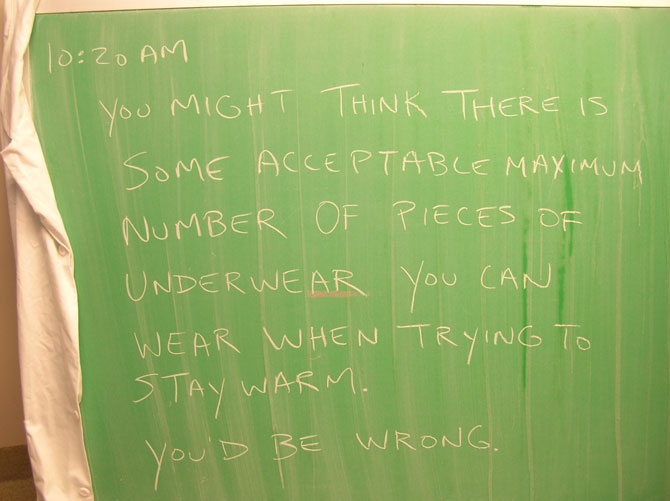 10:20 AM
YOU MIGHT THINK THERE IS
SOME ACCEPTABLE MAXIMUM
NUMBER OF PIECES OF
UNDERWEAR YOU CAN
WEAR WHEN TRYING TO
STAY WARM.
YOU'D BE WRONG.